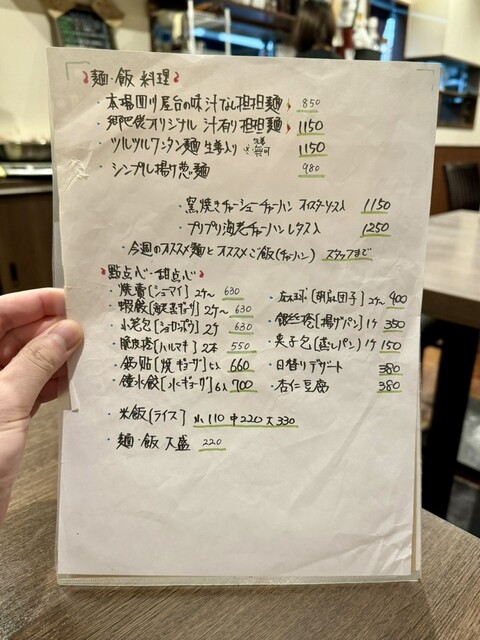 麺・飯 料理
・本場四川屋台の味 汁なし担担麺 850
オリジナル 汁有り担担麺 1150
・ツルツルワンタン麺 生姜入り 1150
・シンプル揚げ葱麺 980
・窯焼きチャーシューチャーハン オイスターソース入 1150
・プリプリ海老チャーハン レタス入 1250
・今週のオススメ麺とオススメご飯(チャーハン) スタッフまで
點点心・甜点心
・焼賣[シューマイ] 2ケ〜 630
・蝦餃[海老蒸ギョーザ] 2ケ〜 630
・小芝包[ショーロンポウ] 2ケ 630
・脆皮捲[ハルマキ] 2本 550
・鍋貼[焼ギョーザ] 5ヶ 660
・鐘水餃[水ギョーザ] 6ヶ 700
・麻球[胡麻団子] 2ケ〜 400
・銀絲捲[揚げパン] 1ケ 350
・夾子包[蒸しパン] 1ケ 150
・日替りデザート 380
・杏仁豆腐 380
・米飯[ライス] 小110 中220 大330
・麺・飯 大盛 220